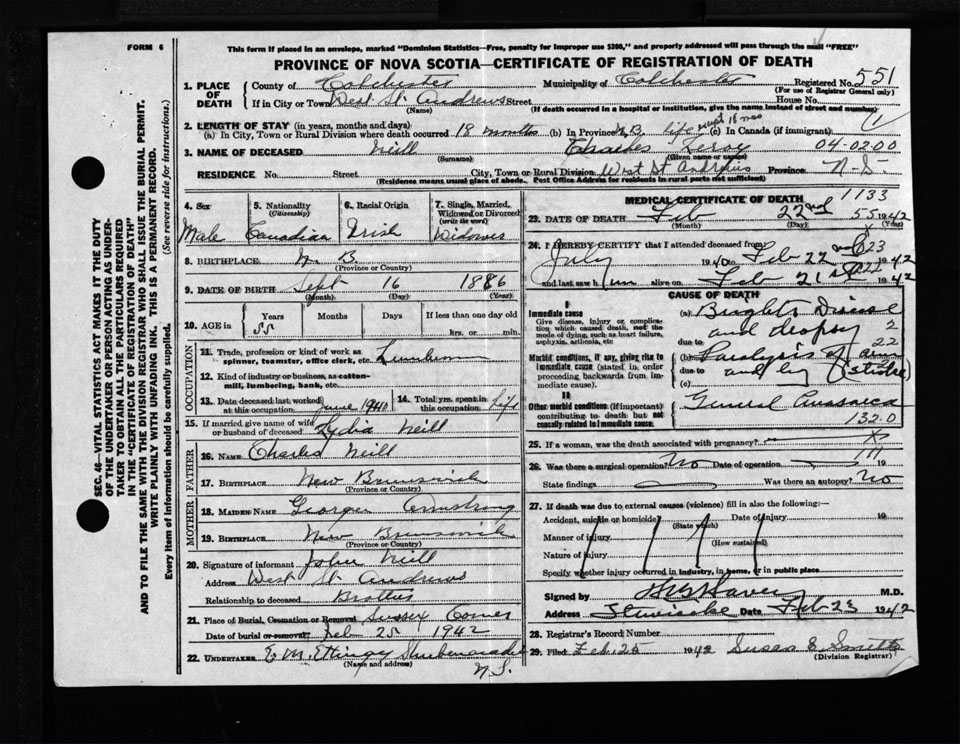 FORM 6
This form if placed in an envelope, marked "Dominion Statistics—Free, penalty for improper use $300," and properly addressed will pass through the mail "FREE"
PROVINCE OF NOVA SCOTIA—CERTIFICATE OF REGISTRATION OF DEATH
SEC. 46—VITAL STATISTICS ACT MAKES IT THE DUTY
OF THE UNDERTAKER OR PERSON ACTING AS UNDER-
TAKER TO OBTAIN ALL THE PARTICULARS REQUIRED
IN THE "CERTIFICATE OF REGISTRATION OF DEATH"
AND TO FILE THE SAME WITH THE DIVISION REGISTRAR WHO SHALL ISSUE THE BURIAL PERMIT.
WRITE PLAINLY WITH UNFADING INK. THIS IS A PERMANENT RECORD.
Every item of information should be carefully supplied. (See reverse side for instructions.)
1. PLACE OF DEATH County of Colchester Municipality of Colchester Registered No. 551
(For use of Registrar General only)
If in City or Town West St. Andrews Street House No.
(Name) (If death occurred in a hospital or institution, give the name instead of street and number)
2. LENGTH OF STAY (in years, months and days)
(a) In City, Town or Rural Division where death occurred 18 months (b) In Province N.B. life except 18 mos (c) In Canada (if immigrant)
3. NAME OF DECEASED Neill Charles Leroy 04-0200
(Surname) (Given name or names)
RESIDENCE No. Street City, Town or Rural Division West St Andrews Province N.S.
(Residence means usual place of abode. Post Office Address for residents in rural parts not sufficient)
4. Sex Male
5. Nationality (Citizenship) Canadian
6. Racial Origin Irish
7. Single, Married, Widowed or Divorced (write the word) Widower
8. BIRTHPLACE N B
(Province or Country)
9. DATE OF BIRTH Sept 16 1886
(Month) (Day) (Year)
10. AGE in Years Months Days If less than one day old
55 hrs. or min.
OCCUPATION
11. Trade, profession or kind of work as spinner, teamster, office clerk, etc. Lumberman
12. Kind of industry or business, as cotton-mill, lumbering, bank, etc.
13. Date deceased last worked at this occupation June 1940 14. Total yrs. spent in this occupation life
15. If married give name of wife or husband of deceased Lydia Neill
FATHER
16. NAME Charles Neill
17. BIRTHPLACE New Brunswick
(Province or Country)
MOTHER
18. MAIDEN NAME Georgia Armstrong
19. BIRTHPLACE New Brunswick
(Province or Country)
20. Signature of informant John Neill
Address West St Andrews
Relationship to deceased Brother
21. Place of Burial, Cremation or Removal Sussex Corner
Date of burial or removal Feb 25 1942
22. UNDERTAKER E. M. Ettinger Shubenacadie
(Name and address) N.S.
MEDICAL CERTIFICATE OF DEATH 1133
23. DATE OF DEATH Feb 22nd 55 1942
(Month) (Day) (Year)
24. I HEREBY CERTIFY that I attended deceased from:
July 1940 to Feb 22 1942
and last saw him alive on Feb 21st 1942
CAUSE OF DEATH
Immediate cause
Give disease, injury or complication which caused death, not the mode of dying, such as heart failure, asphyxia, asthenia, etc
(a) Brights Disease
and dropsy
due to
Morbid conditions, if any, giving rise to immediate cause (stated in order proceeding backwards from immediate cause).
(b) Paralysis of arm
due to and leg (stroke)
(c)
Other morbid conditions (if important) contributing to death but not causally related to immediate cause.
General Anasarca
132.0
25. If a woman, was the death associated with pregnancy? X
26. Was there a surgical operation? No Date of operation 19
State findings Was there an autopsy? No
27. If death was due to external causes (violence) fill in also the following:
Accident, suicide or homicide? Date of injury 19
(State which)
Manner of injury
(How sustained)
Nature of injury
Specify whether injury occurred in industry, in home, or in public place
Signed by M.D.
Address Stewiacke Date Feb 23 1942
28. Registrar's Record Number
29. Filed Feb. 25 1942 Susan E. Smith
(Division Registrar)